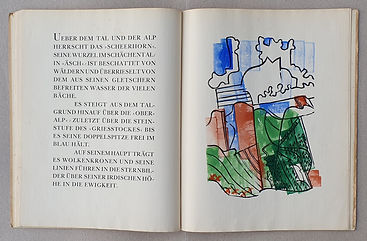 UEBER DEM TAL UND DER ALP
HERRSCHT DAS ›SCHEERHORN‹,
SEINE WURZEL IM SCHÄCHENTAL-
IN ›ÄSCH‹ IST BESCHATTET VON
WÄLDERN UND ÜBERRIESELT VON
DEM AUS SEINEN GLETSCHERN
BEFREITEN WASSER DER VIELEN
BÄCHE.
ES STEIGT AUS DEM TAL-
GRUND HINAUF ÜBER DIE ›OBER-
ALP‹ ZULETZT ÜBER DIE STEIN-
STUFE DES ›GRIESSTOCKES‹ BIS
ES SEINE DOPPELSPITZE FREI IM
BLAU HÄLT.
AUF SEINEM HAUPT TRÄGT
ES WOLKENKRONEN UND SEINE
LINIEN FÜHREN IN DIE STERNBIL-
DER ÜBER SEINER IRDISCHEN HÖ-
HE IN DIE EWIGKEIT.